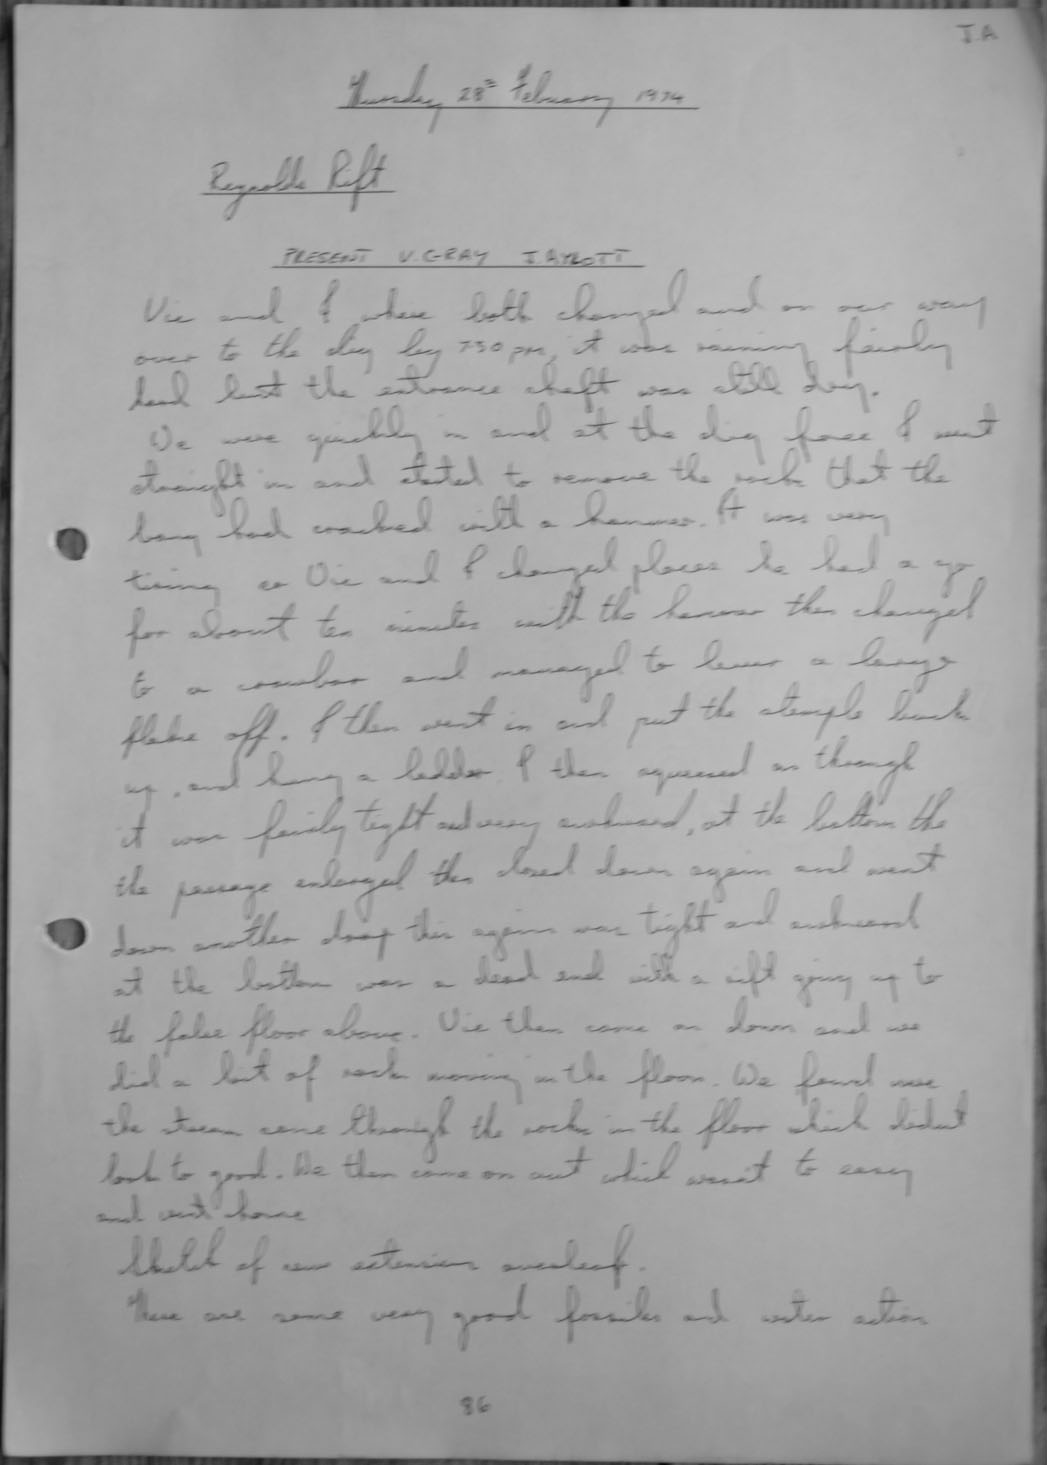 J.A
Thursday 28th February 1974
Reynolds Rift
PRESENT V. GRAY J. AYLOTT
Vic and I where both changed and on our way
over to the dig by 730 pm, it was raining fairly
hard but the entrance shaft was still dry.
We were quickly in and at the dig face I went
straight in and started to remove the rock that the
bang had cracked with a hammer. It was very
tiring so Vic and I changed places he had a go
for about ten minutes with the hammer then changed
to a crowbar and managed to lever a large
flake off. I then went in and put the stemple back
up, and hung a ladder. I then squeezed on through
it was fairly tight and very awkward, at the bottom the
the passage enlarged then closed down again and went
down another drop this again was tight and awkward
at the bottom was a dead end with a rift going up to
the false floor above. Vic then came on down and we
did a bit of rock moving in the floor. We found
the stream came through the rocks in the floor which didnt
look to good. We then came on out which wasnt to easy
and went home
Sketch of new extension overleaf.
There are some very good fossiles and water action
86